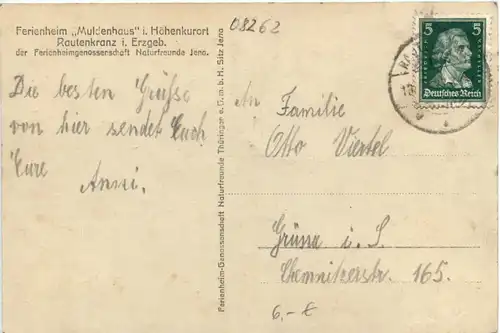 Ferienheim „Muldenhaus" i. Höhenkurort
Rautenkranz i. Erzgeb.
der Ferienheimgenossenschaft Naturfreunde Jena.
08262
Die besten Grüsse
von hier sendet Euch
Eure
Anni.
Ferienheim-Genossenschaft Naturfreunde Thüringen e. G. m. b. H. Sitz Jena
5 5
Deutsches Reich
An Familie
Otto Viertel
Grüna i. S.
Chemnitzerstr. 165.
6,- €